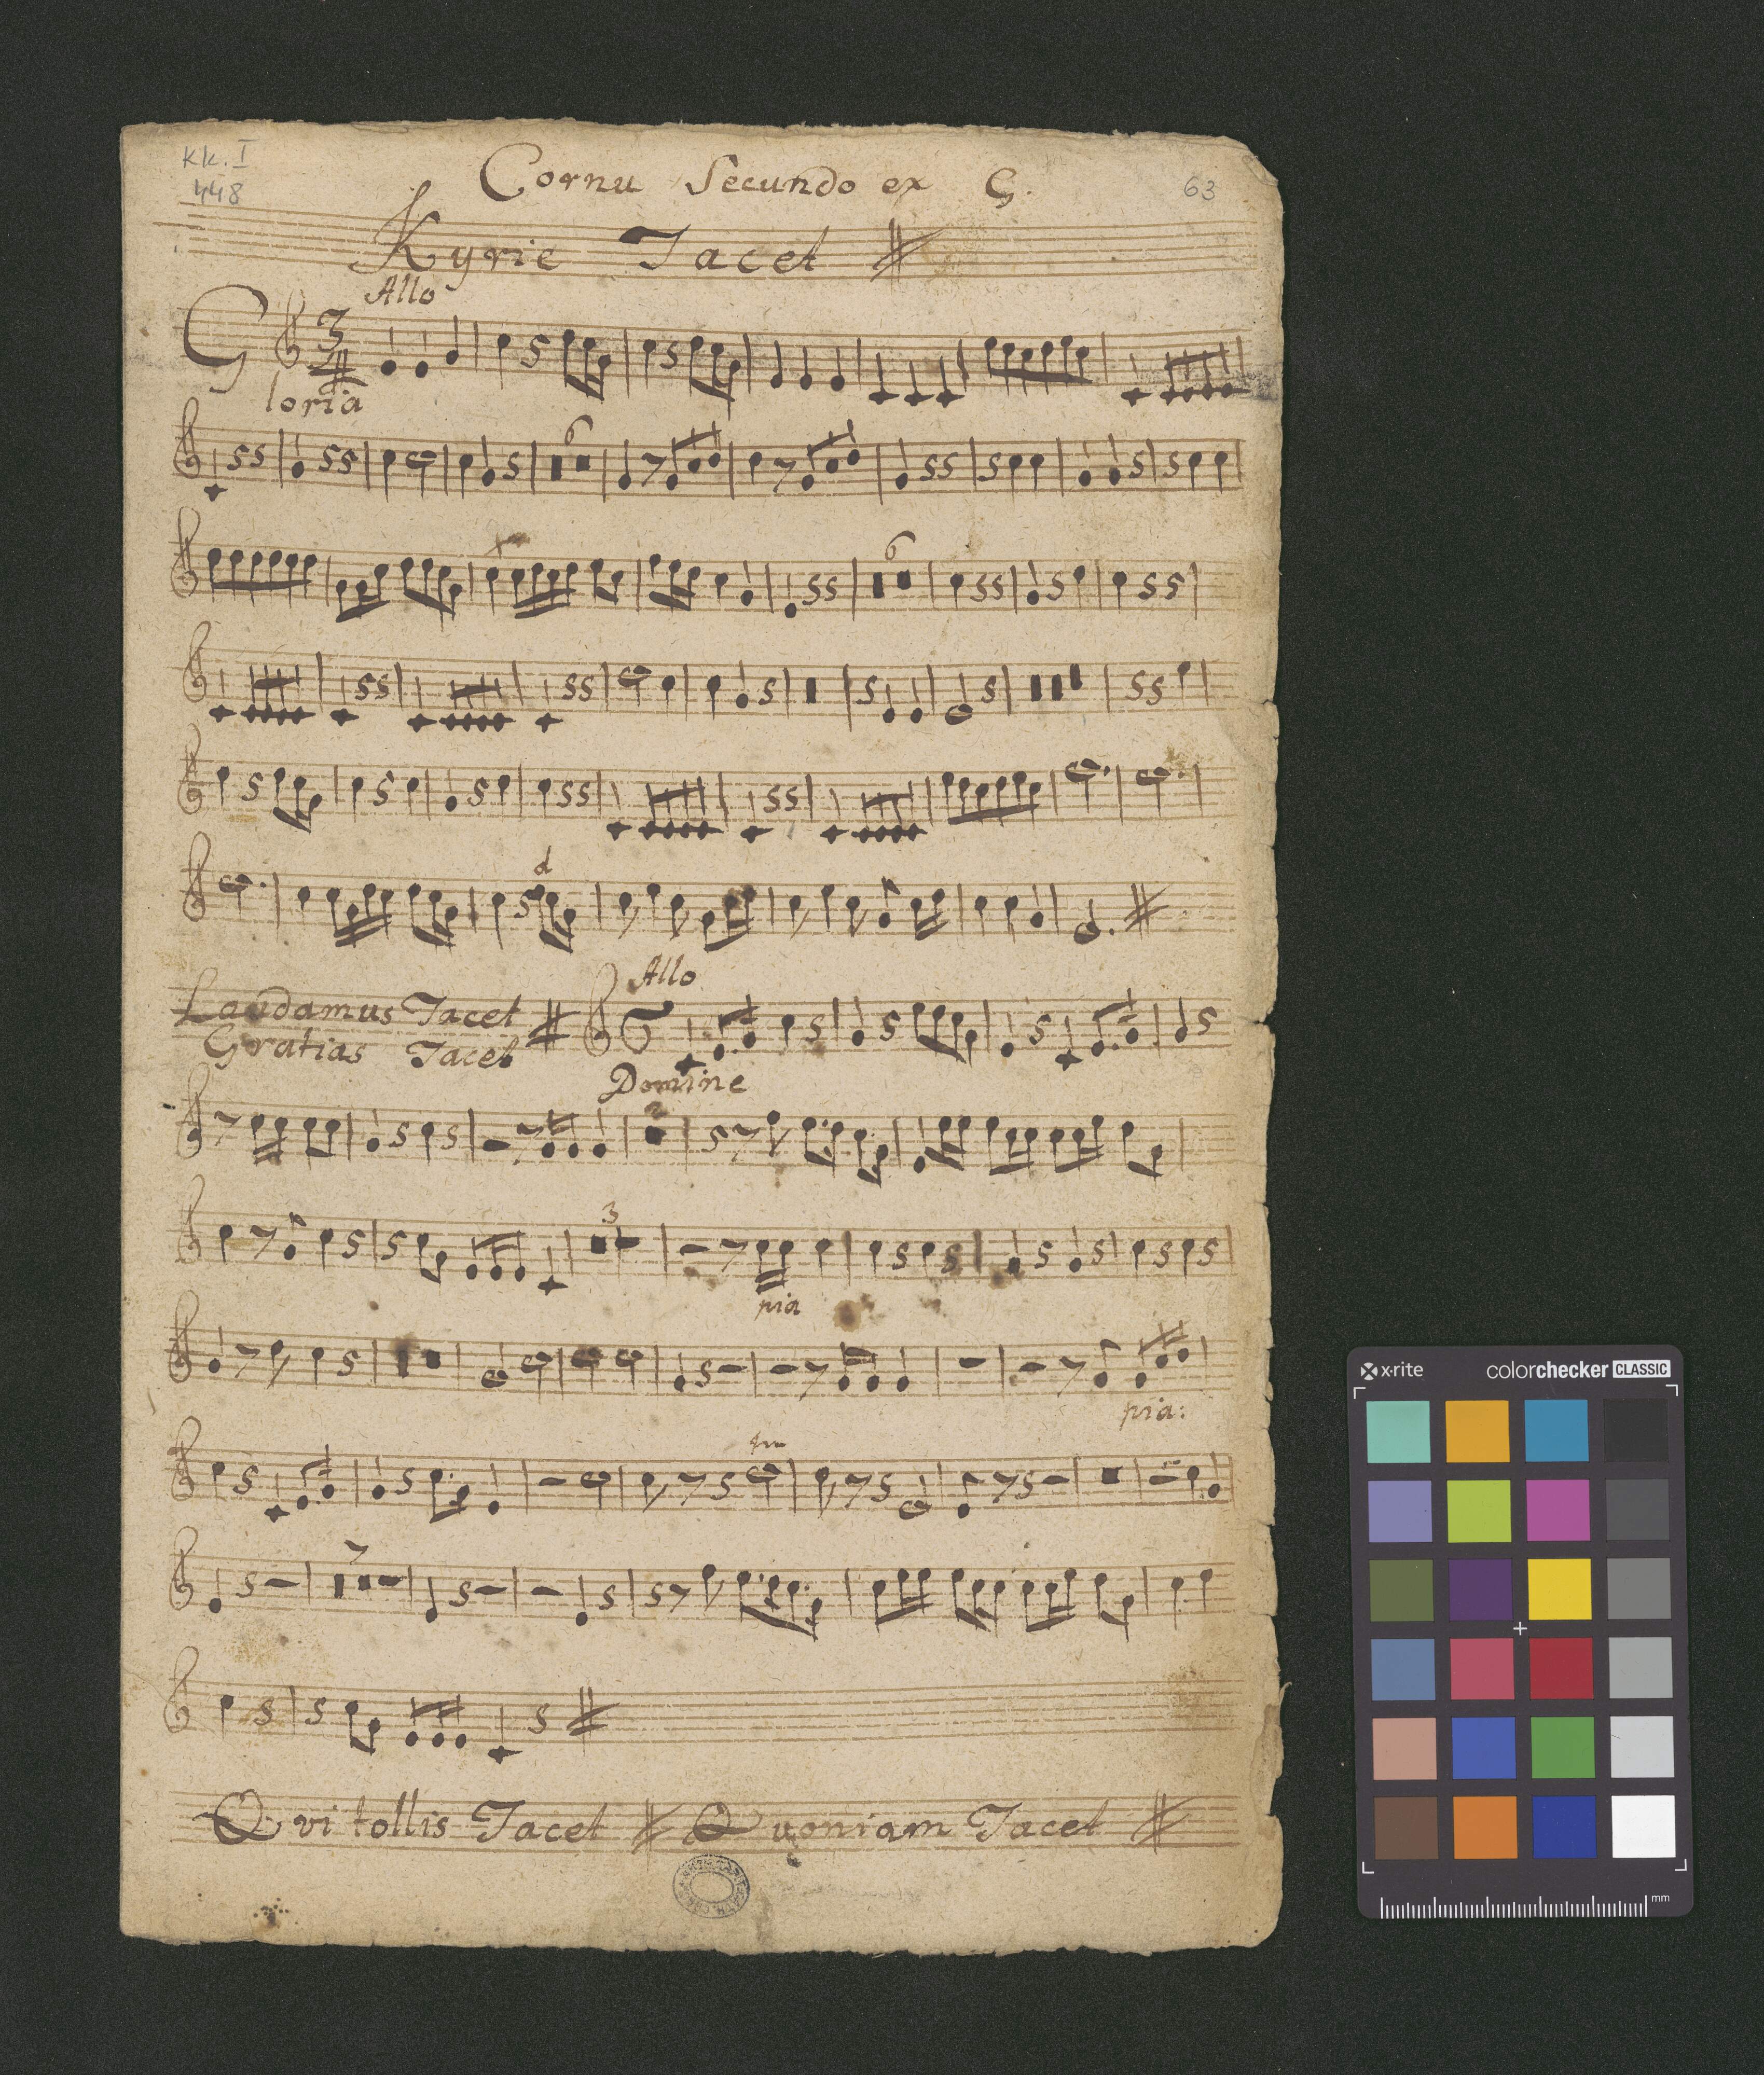 Kk. I
448
Cornu Secundo ex G.
63
Kyrie Tacet
Allo
3
4
Gloria
6
6
d
Allo
Laudamus Tacet
Gratias Tacet
Domine
2
3
pia
pia:
tr
7
Qvi tollis Tacet Qvoniam Tacet
x-rite
colorchecker CLASSIC
mm